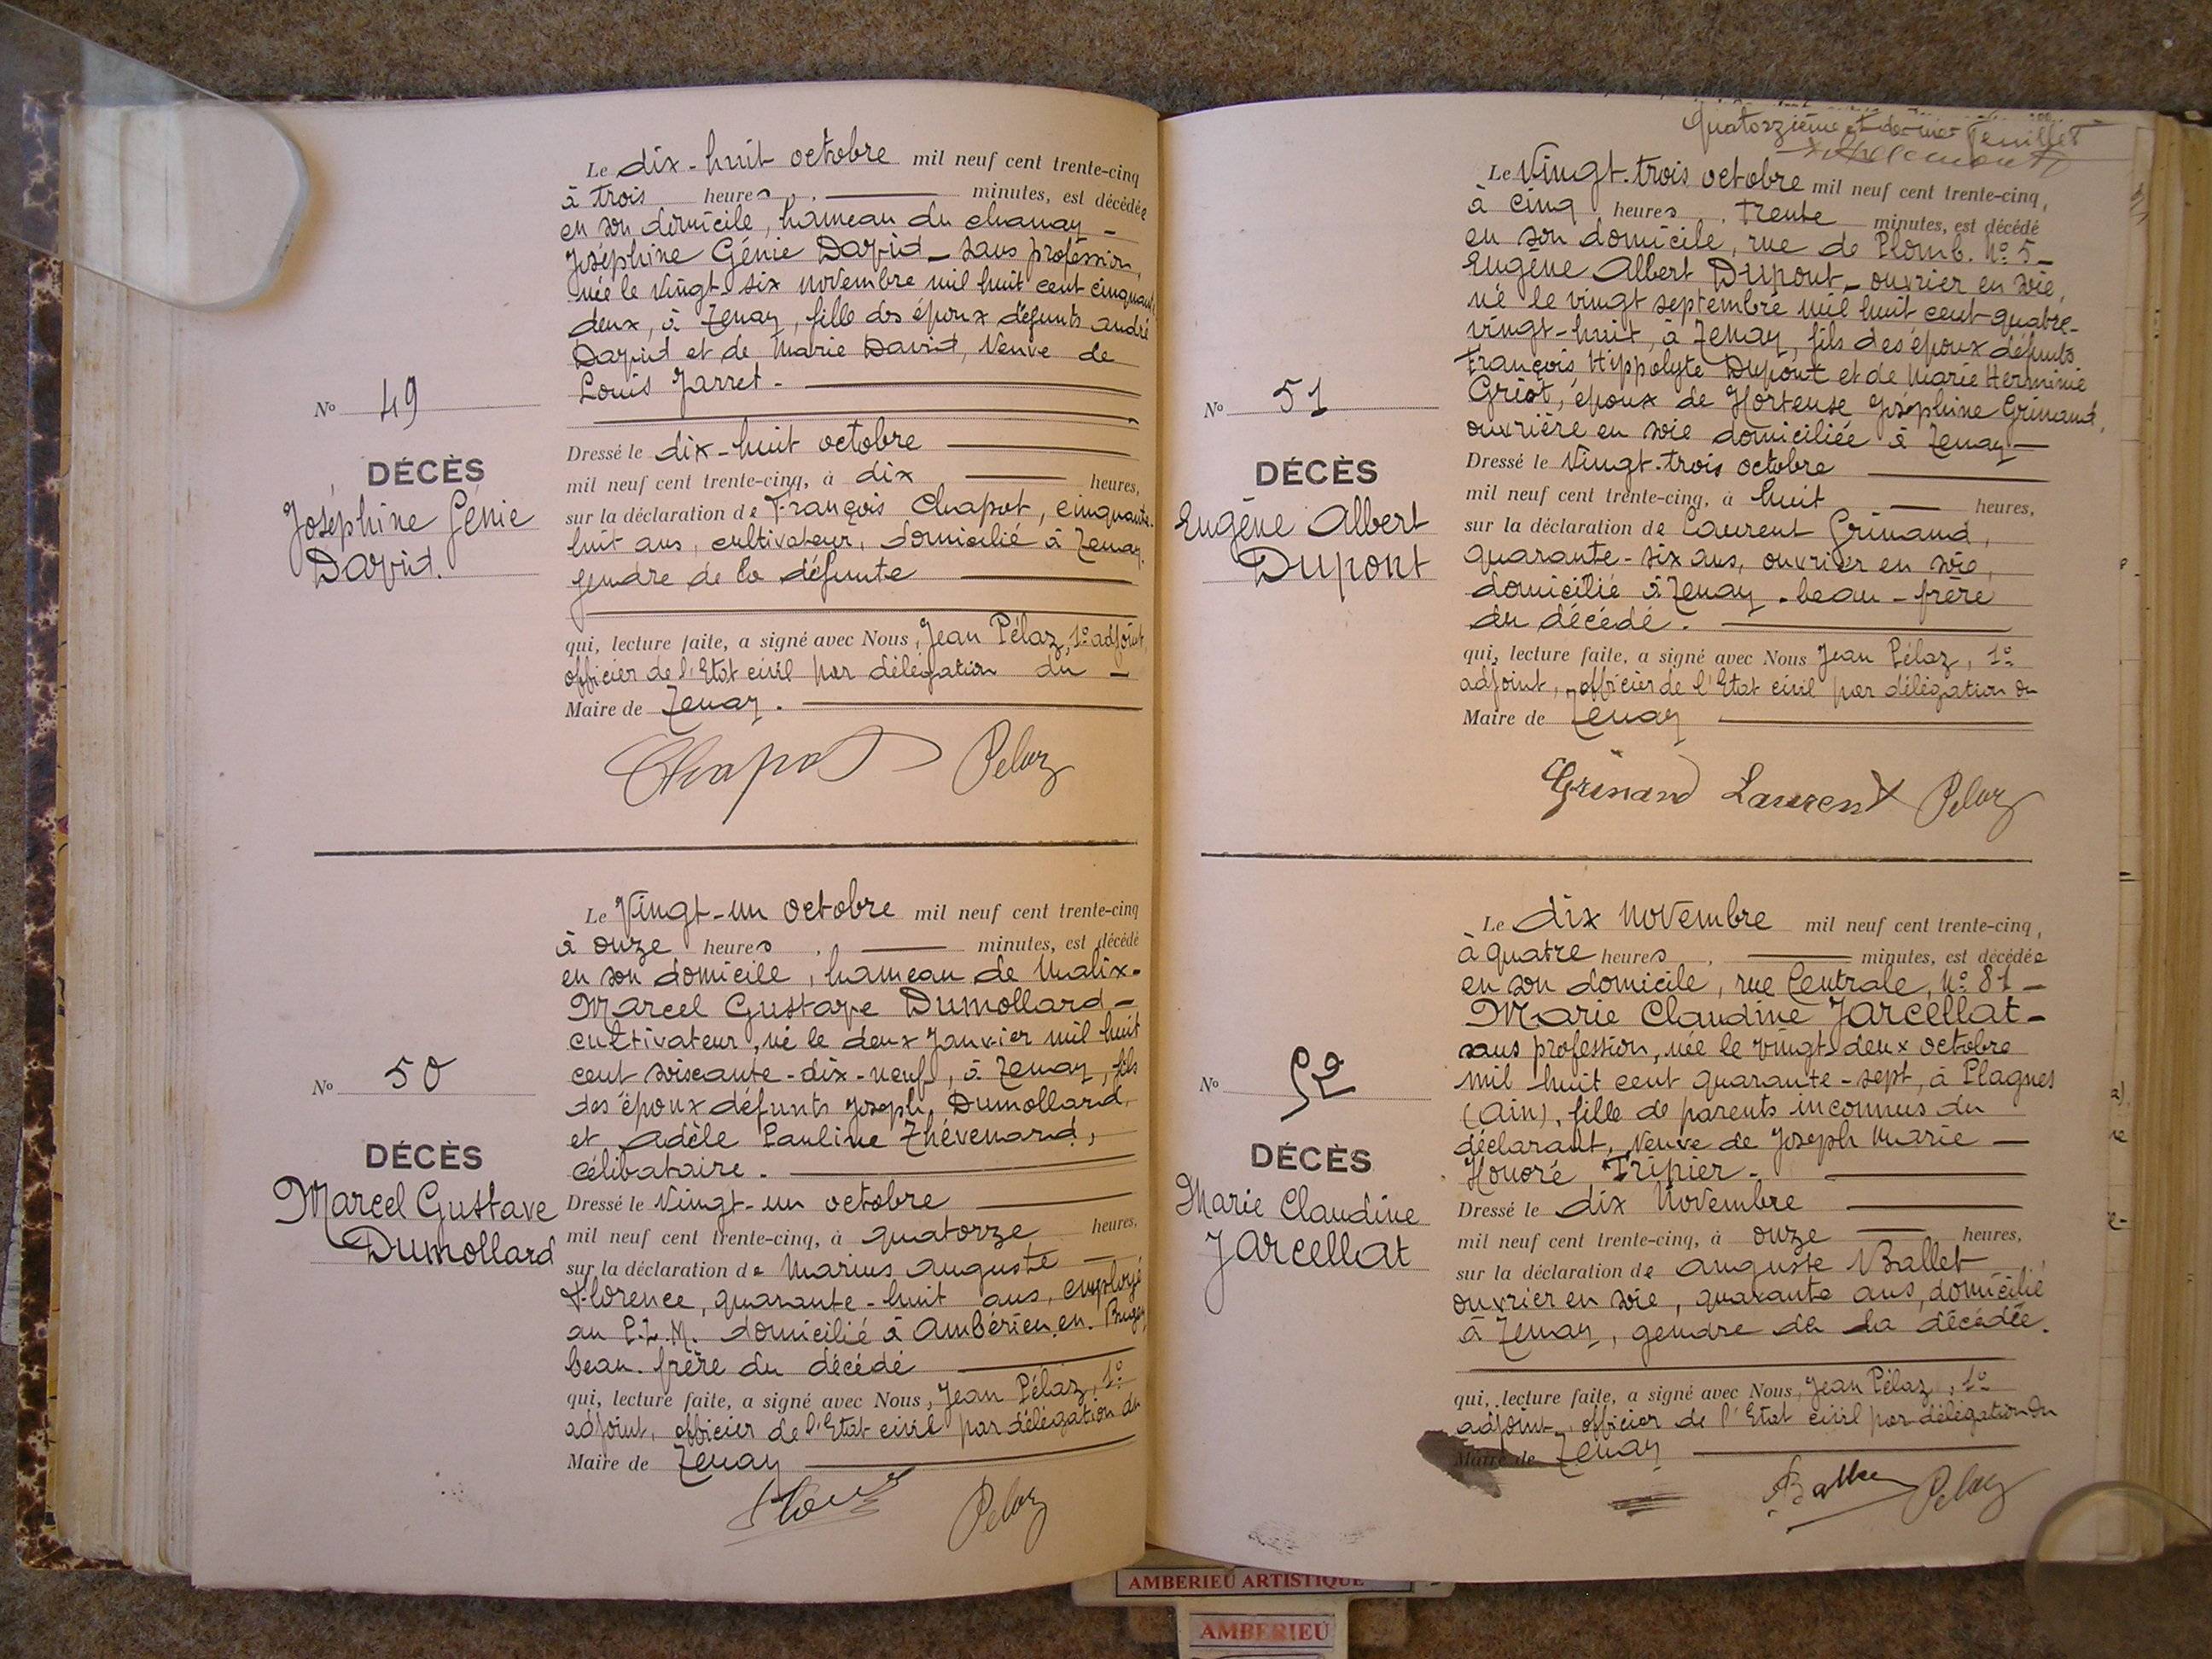 Le dix-huit octobre mil neuf cent trente-cinq
à trois heures, minutes, est décédée
en son domicile, hameau du chanay -
Joséphine Génie David - sans profession,
née le vingt-six novembre mil huit cent cinquante
deux, à Tenay, fille des époux défunts André
David et de Marie David, veuve de
Louis Jarret -
N° 49
DÉCÈS
Joséphine Génie
David.
Dressé le dix-huit octobre
mil neuf cent trente-cinq, à dix heures,
sur la déclaration de François Chapot, cinquante-
huit ans, cultivateur, domicilié à Tenay,
gendre de la défunte
qui, lecture faite, a signé avec Nous, Jean Pélaz, 1er adjoint,
officier de l'Etat civil par délégation du -
Maire de Tenay.
Chapot Pelaz
Le Vingt-un octobre mil neuf cent trente-cinq
à onze heures, minutes, est décédé
en son domicile, hameau de Malix-
Marcel Gustave Dumollard -
cultivateur, né le deux Janvier mil huit
cent soixante-dix-neuf, à Tenay, fils
des époux défunts Joseph Dumollard
et Adèle Pauline Thévenard,
célibataire.
N° 50
DÉCÈS
Marcel Gustave
Dumollard
Dressé le Vingt-un octobre
mil neuf cent trente-cinq, à quatorze heures,
sur la déclaration de Marius Auguste
Florence, quarante-huit ans, employé
au P.L.M. domicilié à Ambérieu-en-Bugey,
beau-frère du décédé
qui, lecture faite, a signé avec Nous, Jean Pélaz, 1er
adjoint, officier de l'Etat civil par délégation du
Maire de Tenay
Pelaz
Quatorzième et dernier Feuillet
Le Vingt-trois octobre mil neuf cent trente-cinq,
à cinq heures, trente minutes, est décédé
en son domicile, rue de Plomb. N° 5 -
Eugène Albert Dupont - ouvrier en soie,
né le vingt septembre mil huit cent quatre-
vingt-huit, à Tenay, fils des époux défunts
François Hippolyte Dupont et de Marie Herminie
Griot, époux de Hortense Joséphine Grinand,
ouvrière en soie domiciliée à Tenay -
N° 51
DÉCÈS
Eugène Albert
Dupont
Dressé le Vingt-trois octobre
mil neuf cent trente-cinq, à huit heures,
sur la déclaration de Laurent Grinand,
quarante-six ans, ouvrier en soie,
domicilié à Tenay, beau-frère
du décédé.
qui, lecture faite, a signé avec Nous Jean Pélaz, 1er
adjoint, officier de l'Etat civil par délégation du
Maire de Tenay
Grinand Laurent Pelaz
Le dix Novembre mil neuf cent trente-cinq,
à quatre heures, minutes, est décédée
en son domicile, rue Centrale, N° 81 -
Marie Claudine Jarcellat -
sans profession, née le vingt-deux octobre
mil huit cent quarante-sept, à Plagnes
(Ain), fille de parents inconnus du
déclarant, veuve de Joseph Marie -
Honoré Tripier -
N° 52
DÉCÈS
Marie Claudine
Jarcellat
Dressé le dix Novembre
mil neuf cent trente-cinq, à onze heures,
sur la déclaration de Auguste Ballet
ouvrier en soie, quarante ans, domicilié
à Tenay, gendre de la décédée.
qui, lecture faite, a signé avec Nous, Jean Pélaz, 1er
adjoint, officier de l'Etat civil par délégation du
Maire de Tenay
Ballet Pelaz
AMBERIEU ARTISTIQUE
AMBERIEU